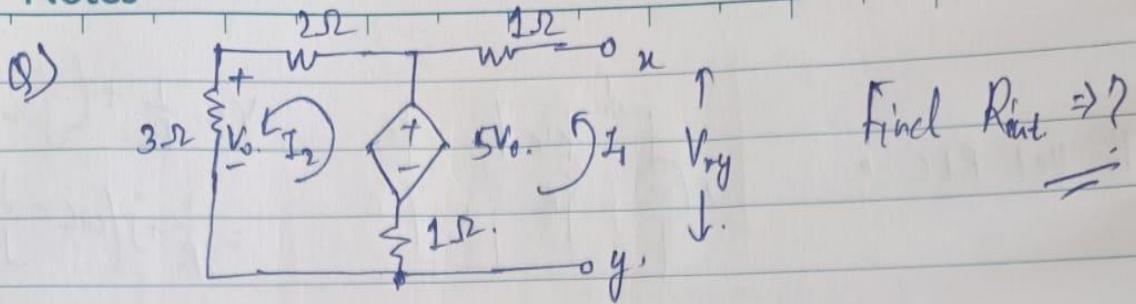 Notes
Q)
2Ω
1Ω
x
+
3Ω
V₀.
-
I₂
+
-
5V₀.
I₁
Vxy
1Ω.
y.
Find Rint ⇒ ?